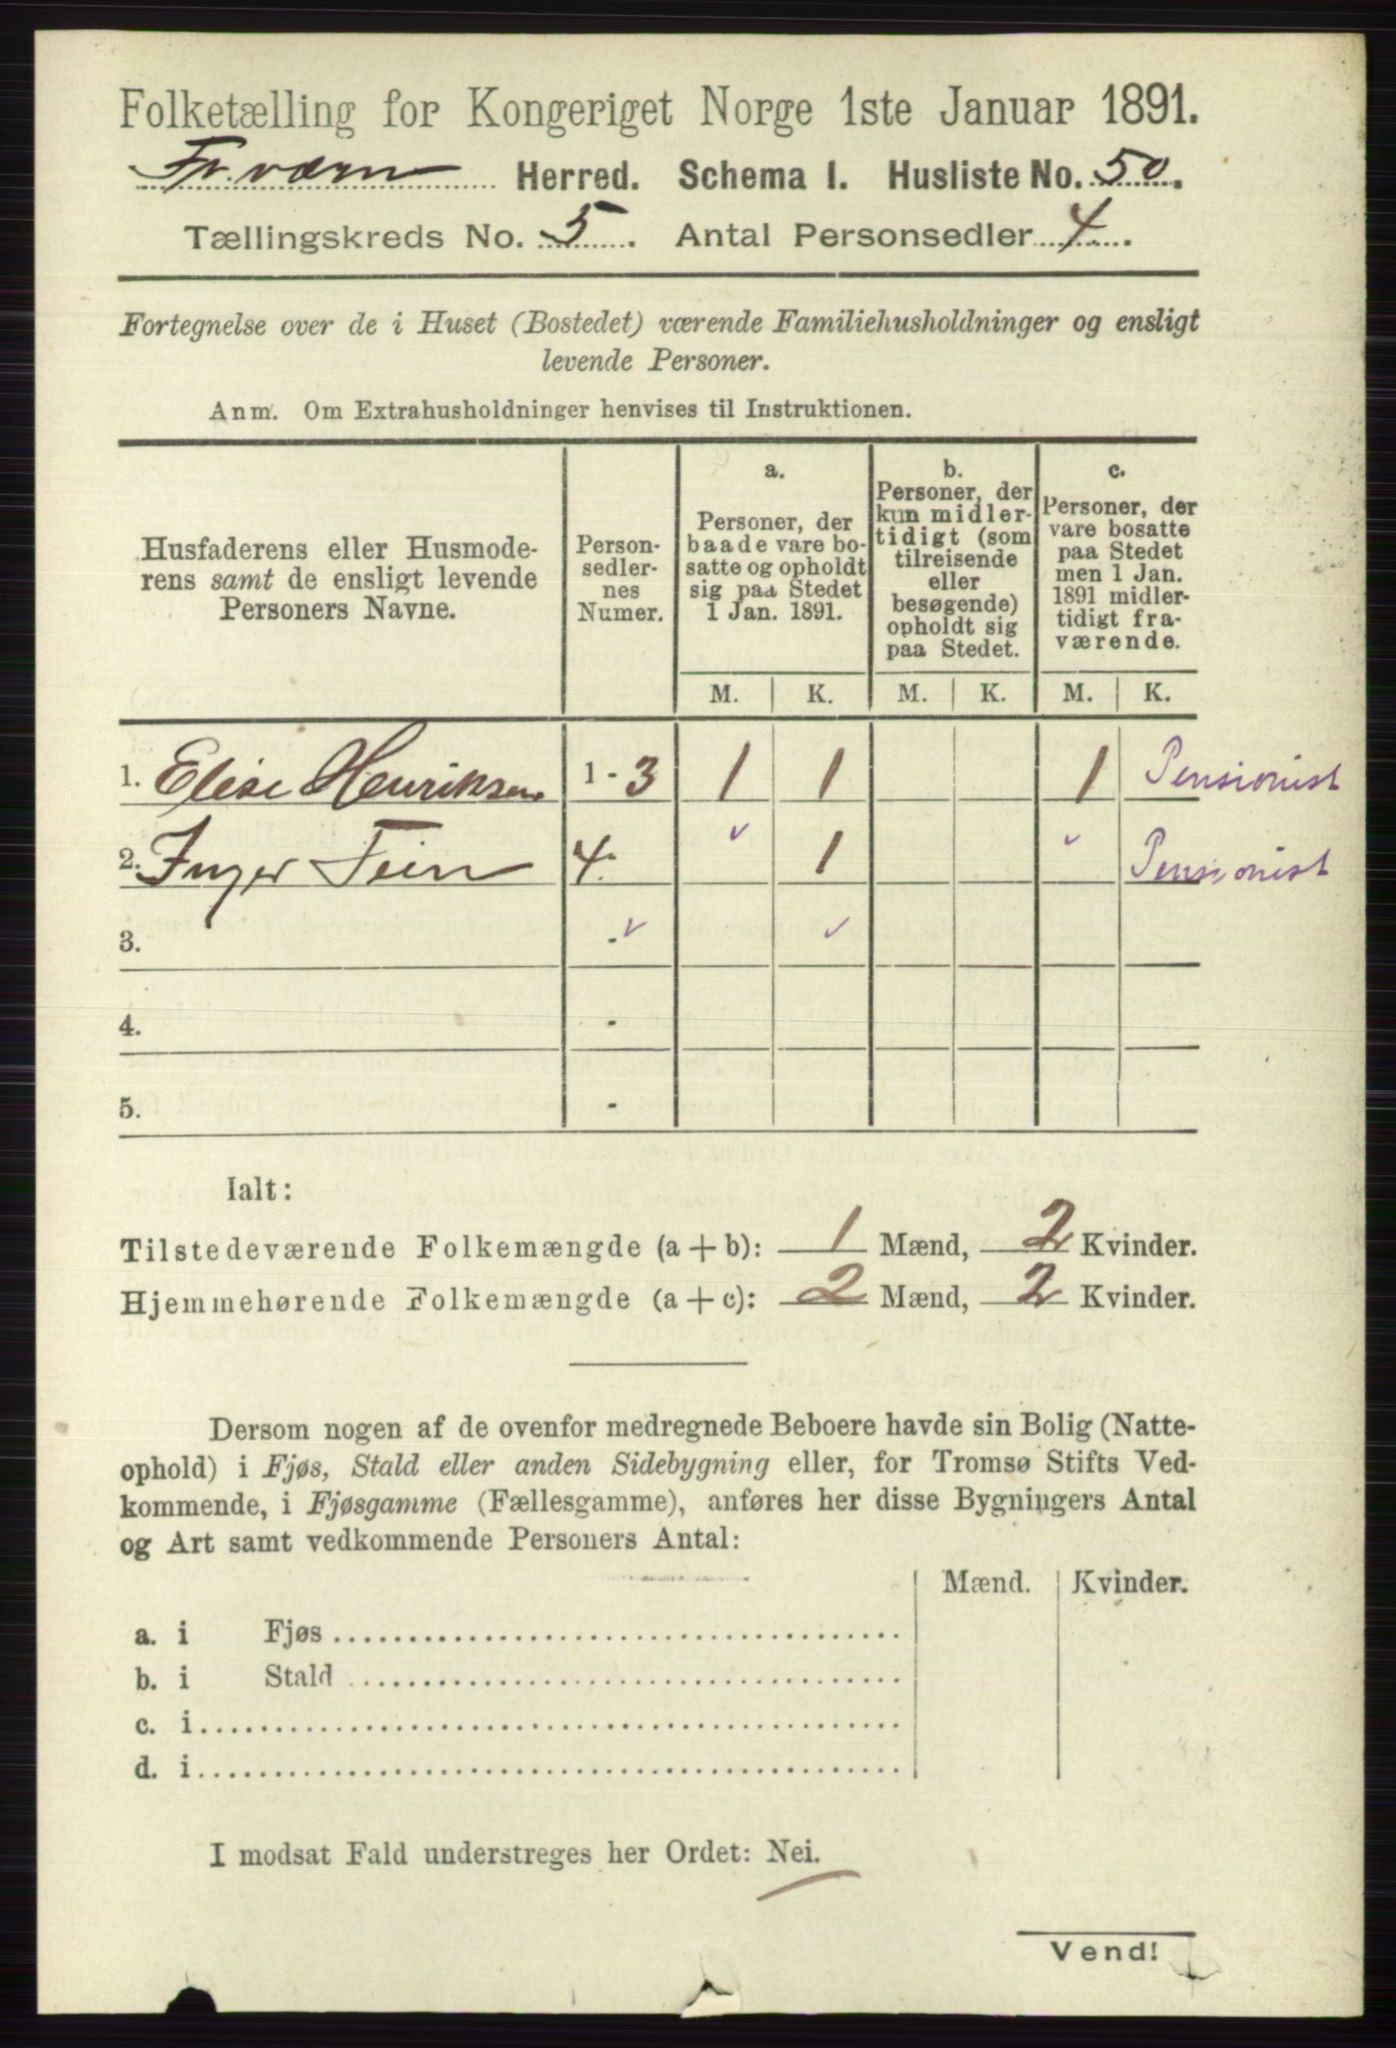 Folketælling for Kongeriget Norge 1ste Januar 1891.
Fr.værn Herred. Schema I. Husliste No. 50.
Tællingskreds No. 5. Antal Personsedler 4.
Fortegnelse over de i Huset (Bostedet) værende Familiehusholdninger og ensligt
levende Personer.
Anm. Om Extrahusholdninger henvises til Instruktionen.
Husfaderens eller Husmode-
rens samt de ensligt levende
Personers Navne.
Person-
sedler-
nes
Numer.
a.
Personer, der
baade vare bo-
satte og opholdt
sig paa Stedet
1 Jan. 1891.
b.
Personer, der
kun midler-
tidigt (som
tilreisende
eller
besøgende)
opholdt sig
paa Stedet.
c.
Personer, der
vare bosatte
paa Stedet
men 1 Jan.
1891 midler-
tidigt fra-
værende.
M. K. M. K. M. K.
1. Elise Henriksen 1 - 3 1 1 1 Pensionist
2. Inger 4. 1 Pensionist
3. -
4. -
5. -
Ialt:
Tilstedeværende Folkemængde (a + b): 1 Mænd, 2 Kvinder.
Hjemmehørende Folkemængde (a + c): 2 Mænd, 2 Kvinder.
Dersom nogen af de ovenfor medregnede Beboere havde sin Bolig (Natte-
ophold) i Fjøs, Stald eller anden Sidebygning eller, for Tromsø Stifts Ved-
kommende, i Fjøsgamme (Fællesgamme), anføres her disse Bygningers Antal
og Art samt vedkommende Personers Antal:
Mænd. Kvinder.
a. i Fjøs
b. i Stald
c. i
d. i
I modsat Fald understreges her Ordet: Nei.
Vend!